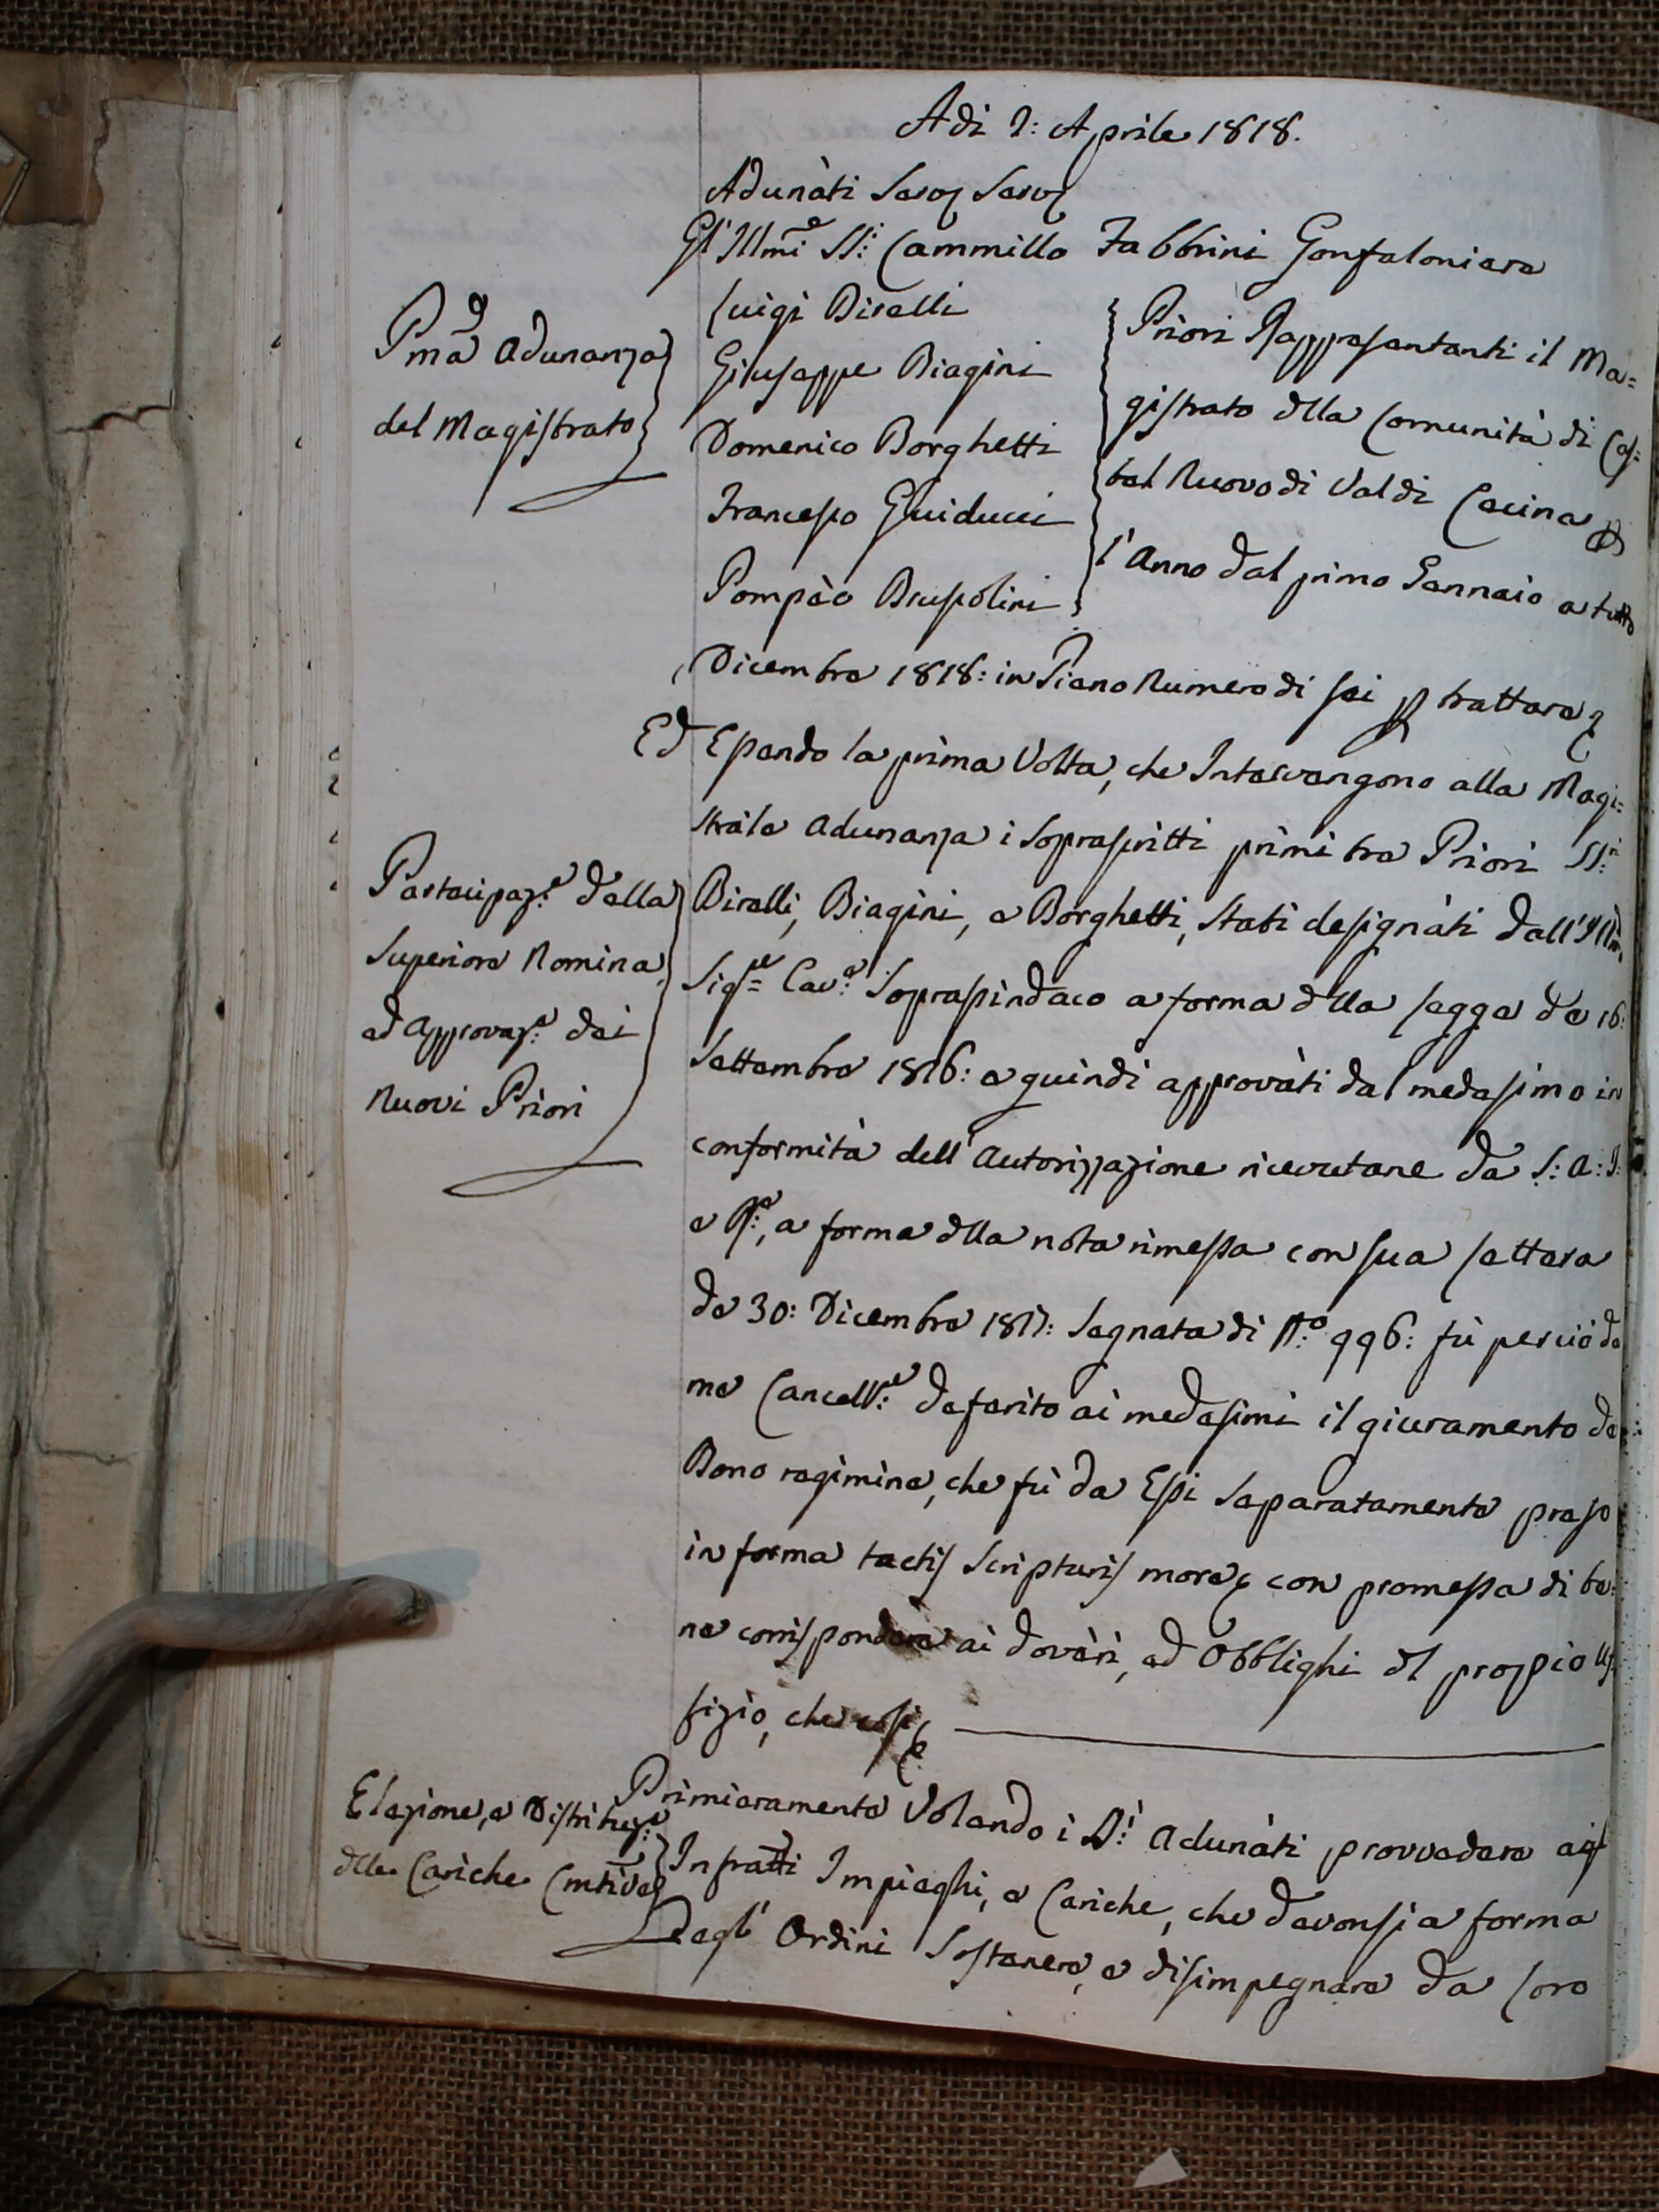 Adi 2: Aprile 1818.
Adunàti Servs Servs
Gl'Illmi SS:i Cammillo Fabbrini Gonfaloniere
Luigi Birelli
Giuseppe Biagini
Domenico Borghetti
Francesco Guiducci
Pompèo Bruscolini
Priori Rappresentanti il Ma=
gistrato dlla Comunità di Cas=
tel Nuovo di Val di Cecina p
l'Anno dal primo Gennaio a tutto
Pma Adunanza
del Magistrato
Dicembre 1818: in Pieno Numero di sei p trattare
Ed Essendo la prima Volta, che Intervengono alla Magi=
strale Adunanza i Soprascritti primi tre Priori SS:ri
Birelli, Biagini, e Borghetti, Stati designàti dall'Illmo
Sigre Cav:e Soprasindaco a forma dlla Legge de 16:
Settembre 1816: e quindi approvàti dal medesimo in
conformità dell'Autorizzazione ricevutane da S: A: I:
e R:e, a forma dlla nota rimessa con sua Lettera
de 30: Dicembre 1817: Segnata di N:o 996: fù perciò da
me Cancell:e deferito ai medesimi il giuramento de
Bono regimine, che fù da Essi Separatamente preso
in forma tactis Scripturis more, con promessa di be:
ne corrispondere ai dovèri, ed Obblighi dl proprio Uf
fizio, che così
Partecipaz:e della
Superiore Nomina,
ed Approvaz:e dei
Nuovi Priori
Primieramente Volendo i D:i Adunàti provvedere agl
Infratti Impieghi, e Cariche, che devonsi a forma
Degl' Ordini Sostenere, e disimpegnare da Loro
Elezione, e Distribuz:e
dlle Cariche Cmtive